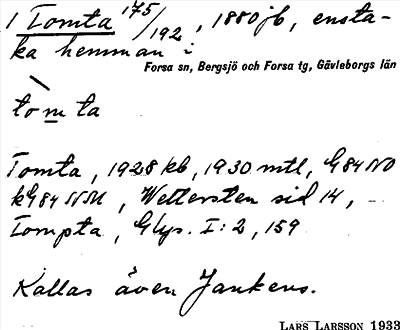 1 Tomta 175/192, 1880 jb, ensta-
ka hemman i
Forsa sn, Bergsjö och Forsa tg, Gävleborgs län
tomta
Tomta, 1928 kb, 1930 mtl, G84NO
kG84NM, Wettersten sid 14,
Tompta, Glys. I:2, 159
Kallas även Jankens.
LARS LARSSON 1933